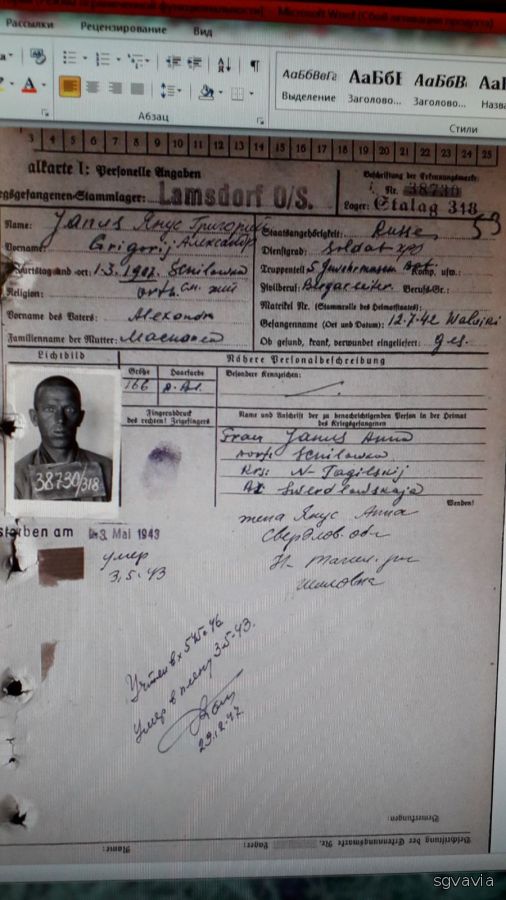 Microsoft Word
Рассылки Рецензирование Вид
АаБбВвГг АаБбВ АаБбВ
Выделение Заголово... Заголово... Назва
Абзац
Стили
3 4 5 6 7 8 9 10 11 12 13 14 15 16 17 18 19 20 21 22 23 24 25
alkarte I: Personelle Angaben
Beschriftung der Erkennungsmarke
Nr. 38730
egsgefangenen-Stammlager: Lamsdorf O/S.
Lager: Stalag 318
53
Name: Janus Янус Григорий
Staatsangehörigkeit: Russe
Vorname: Grigorij Александр
Dienstgrad: Soldat
Geburtstag und -ort: 1.3.1907. Schilowka
Truppenteil: 5 Komp. usw.:
Religion: orth.
Zivilberuf: Berufs-Gr.:
Matrikel Nr. (Stammrolle des Heimatstaates):
Vorname des Vaters: Alexander
Gefangennahme (Ort und Datum): 12.7.42 Waluiki
Familienname der Mutter:
Ob gesund, krank, verwundet eingeliefert: ges.
Lichtbild
Nähere Personalbeschreibung
Größe
Haarfarbe
Besondere Kennzeichen:
166
Fingerabdruck
des rechten! Zeigefingers
Name und Anschrift der zu benachrichtigenden Person in der Heimat
des Kriegsgefangenen
Frau Janus Anna
Dorf: Schilowka
Krs: N-Tagilskij
Swerdlowskaja
38730/318
Wenden!
storben am -3. Mai 1943
умер
3.5.43
жена Янус Анна
Свердлов. обл
Н-Тагил. рн
Шиловка
Умер в плену 3.5-43.
Bemerkungen:
Beschriftung der Erkennungsmarke Nr. Lager: Name:
sgvavia